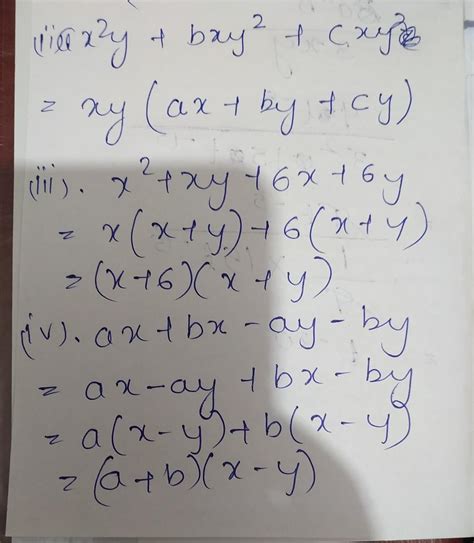 (ii) ax²y + bxy² + cxy²
= xy (ax + by + cy)
(iii). x² + xy + 6x + 6y
= x(x + y) + 6(x + y)
= (x + 6)(x + y)
(iv). ax + bx - ay - by
= ax - ay + bx - by
= a(x - y) + b(x - y)
= (a + b)(x - y)